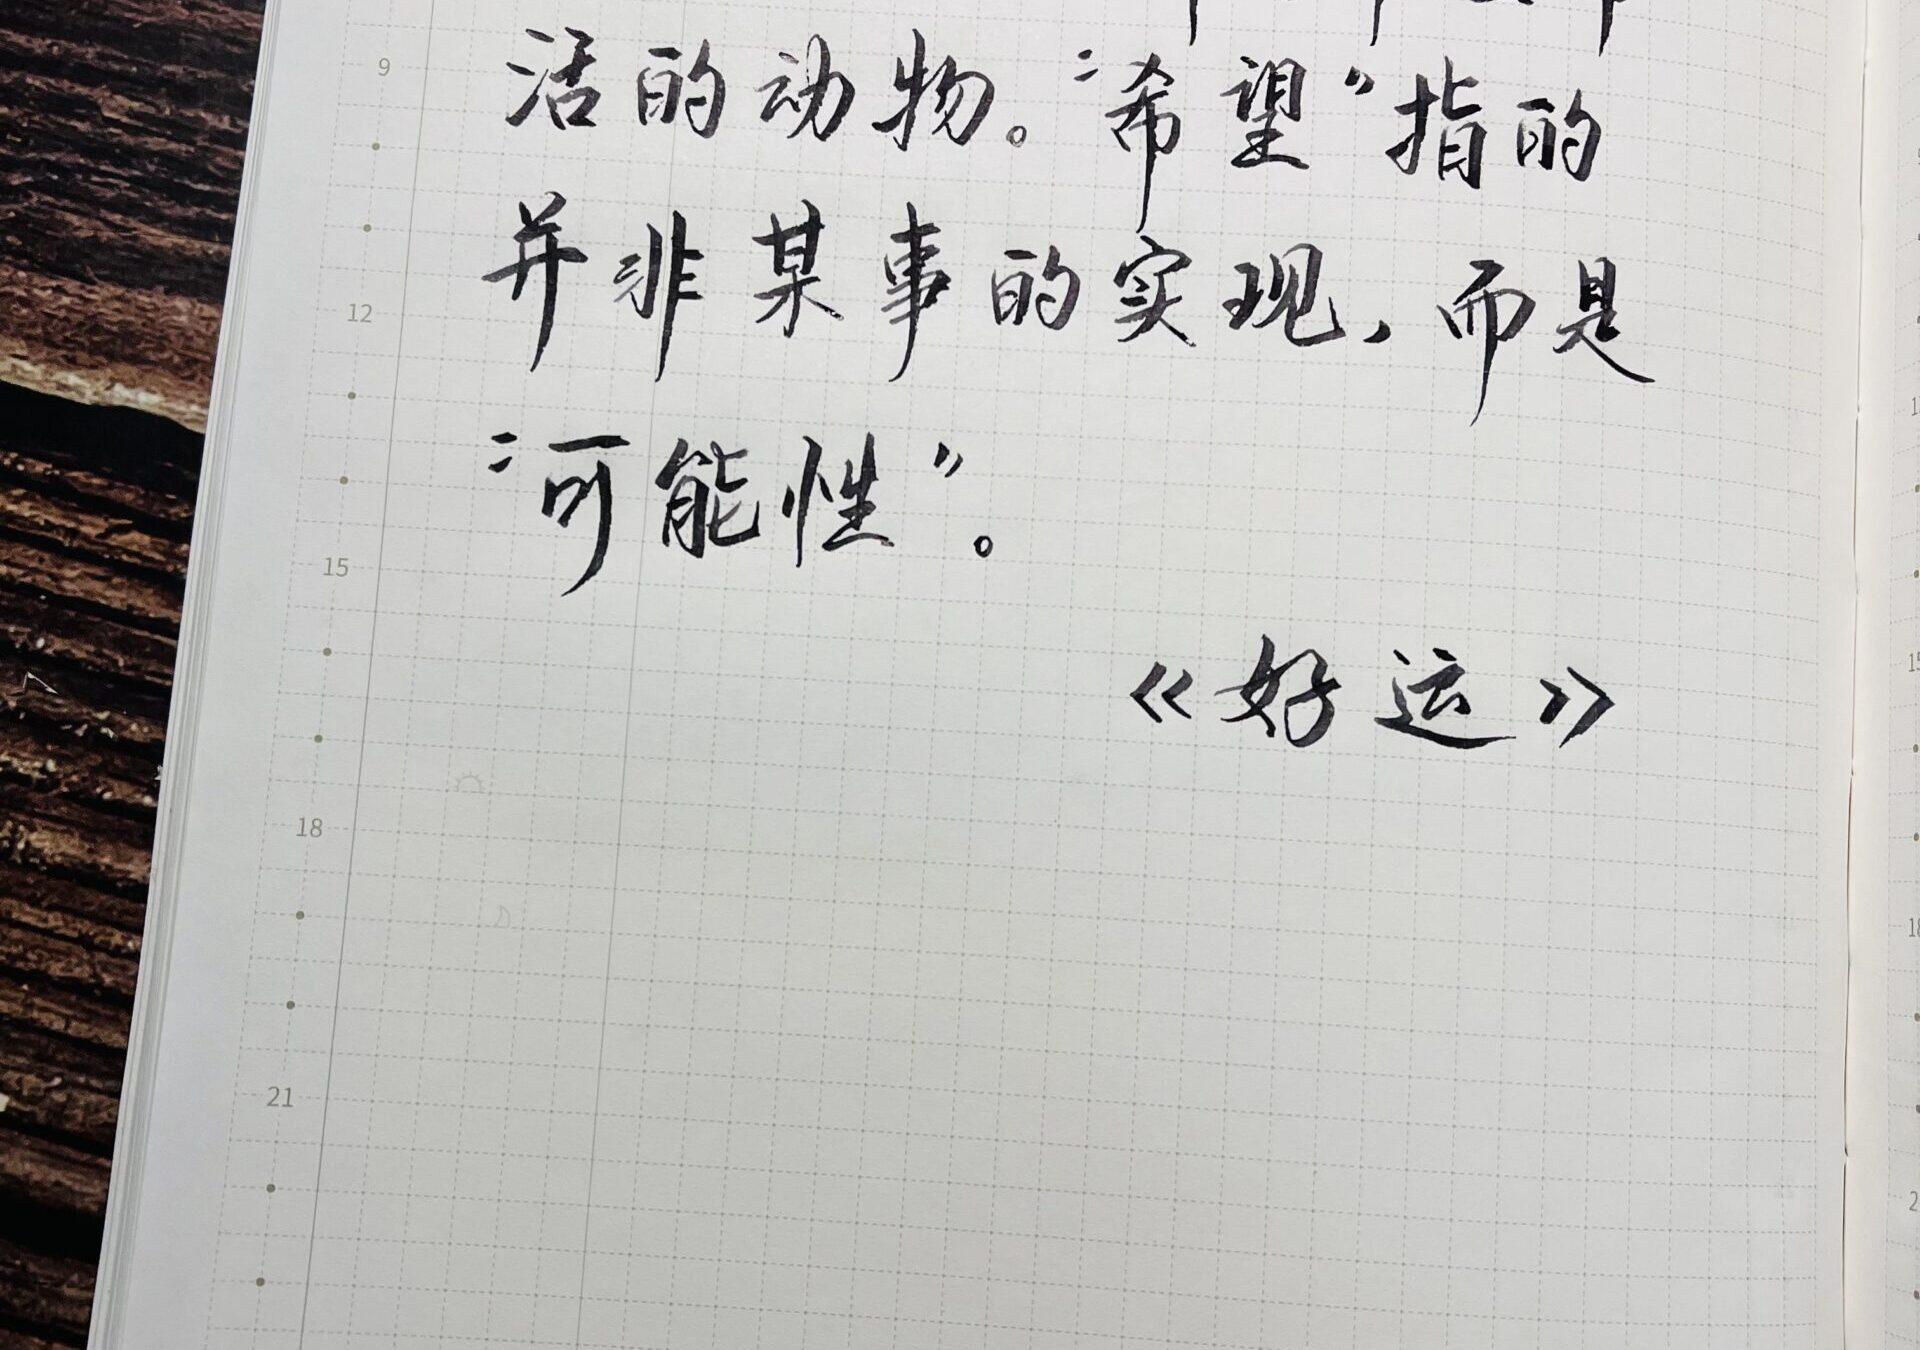 9
活的动物。“希望”指的
并非某事的实现,而是
12
“可能性”。
15
《好运》
18
21